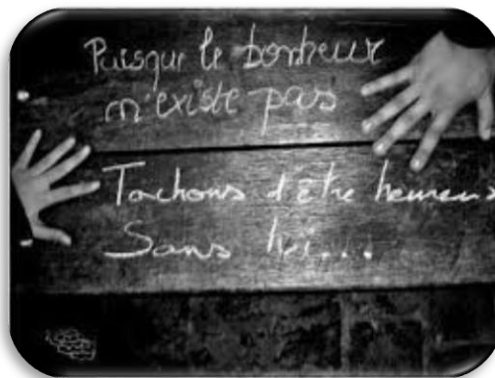 Puisque le bonheur
n'existe pas
Tachons d'être heureux
Sans lui...